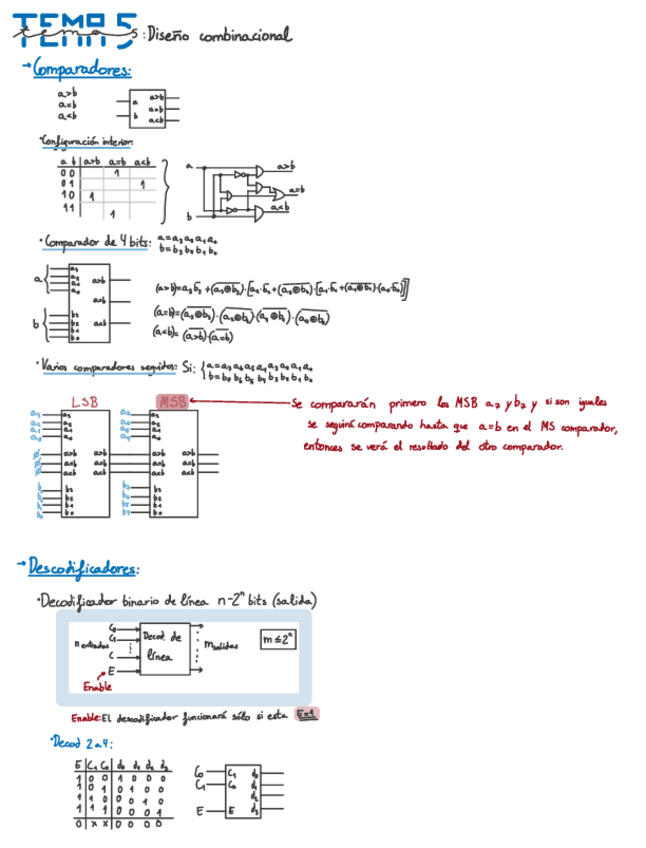 TEMA 5
temas : Diseño combinacional
→ Comparadores:
a>b
a=b
a<b
a
b
a>b
a=b
a<b
· Configuración interior:
a b a>b a=b a<b
0 0 1
0 1 1
1 0 1
1 1 1
a
b
a>b
a=b
a<b
· Comparador de 4 bits: a=a₃a₂a₁a₀
b=b₃b₂b₁b₀
a
b
a₃
a₂
a₁
a₀
b₃
b₂
b₁
b₀
a>b
a=b
a<b
· Varios comparadores seguidos: Si:
LSB
MSB
a>b a>b
a=b a=b
a<b a<b
a>b a>b
a=b a=b
a<b a<b
Se compararán primero los MSB a₇ y b₇ y si son iguales
se seguirá comparando hasta que a=b en el MS comparador,
entonces se verá el resultado del otro comparador.
→ Descodificadores:
· Decodificador binario de línea n-2ⁿ bits (salida)
n entradas
C₀
C₁
C
E
Enable
Decod. de
línea
m salidas
m≤2ⁿ
Enable: El descodificador funcionará sólo si esta E=1
· Decod 2a4:
E C₁ C₀ d₀ d₁ d₂ d₃
1 0 0 1 0 0 0
1 0 1 0 1 0 0
1 1 0 0 0 1 0
1 1 1 0 0 0 1
0 x x 0 0 0 0
C₀
C₁
E
C₁
C₀
E
d₀
d₁
d₂
d₃